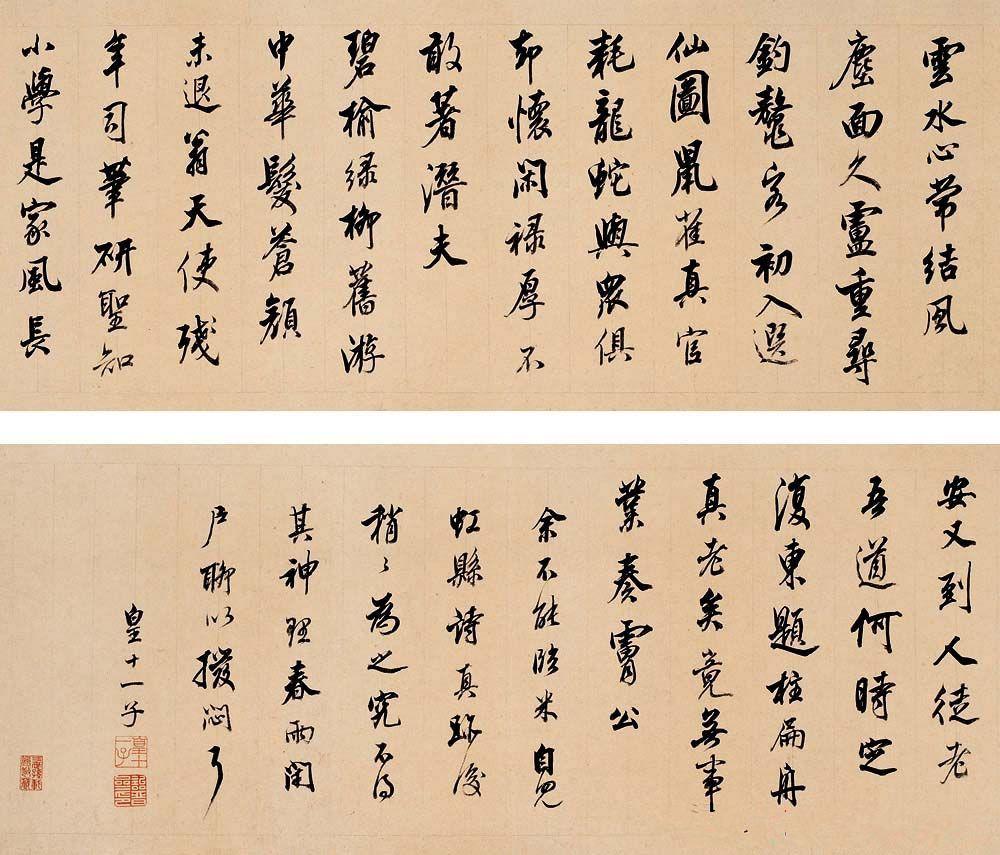 雲水心常結風
塵面久盧重尋
釣鼇客初入選
仙圖鼠雀真官
耗龍蛇與眾俱
却懷閑祿厚不
敢著潛夫
碧榆綠柳舊游
中華髮蒼顏
未退翁天使殘
年司筆研聖知
小學是家風長
安又到人徒老
吾道何時定
復東題柱扁舟
真老矣竟無事
業奏膚公
余不能臨米自見
虹縣詩真跡後
稍〻為之究不得
其神理春雨閉
戶聊以撥悶耳
皇十一子
皇十一子